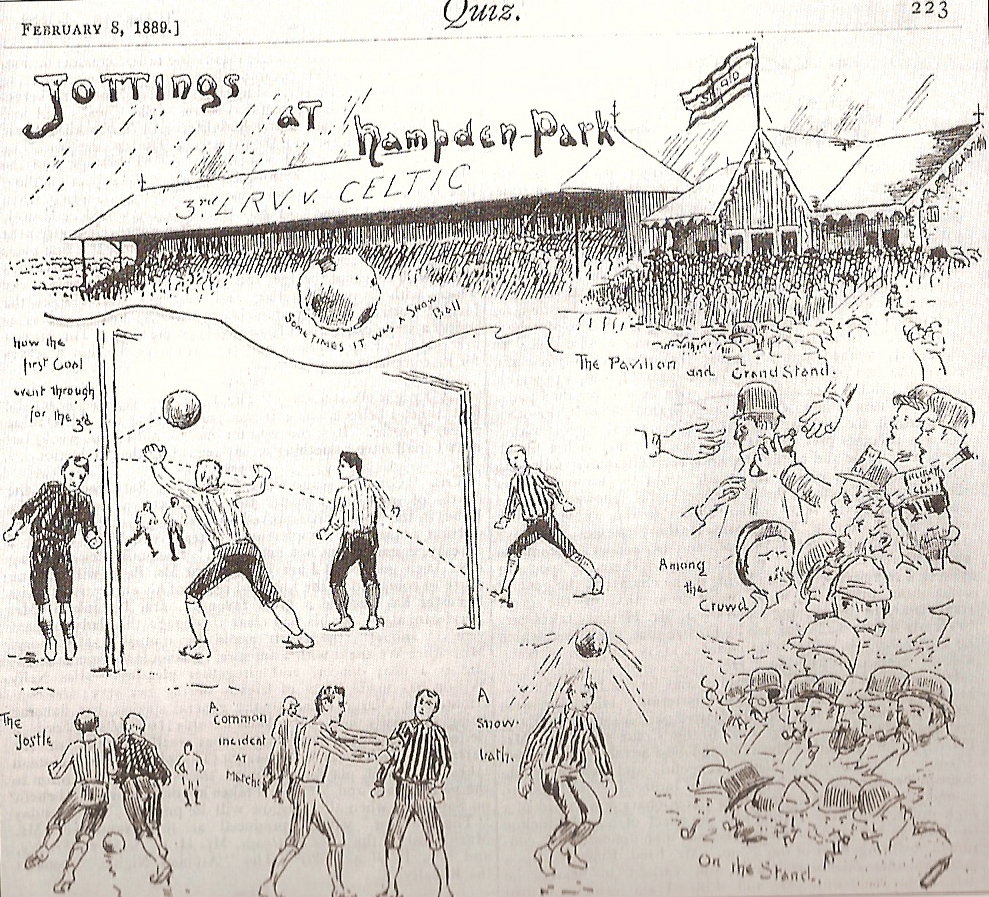 FEBRUARY 8, 1889.]
Quiz.
223
Jottings
at
Hampden-Park
3rd L R V. v. CELTIC
SOMETIMES IT WAS A SNOW
Ball
The Pavilion and Grand Stand.
how the
first Goal
went through
for the 3d
Among
the
Crowd
The
Jostle
A
Common
incident
AT
Matches
A
snow-
bath.
On the Stand.